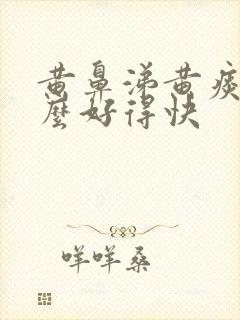 黄鼻涕黄痰
么好得快
咩咩桑